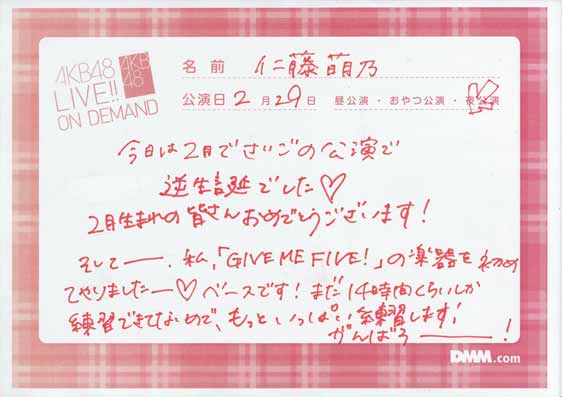 AKB48
LIVE!!
ON DEMAND
AKB
48
名前 仁藤萌乃
公演日 2月29日 昼公演・おやつ公演・夜公演
今日は2月でさいごの公演で
逆生誕でした♡
2月生まれの皆さんおめでとうございます！
そしてーー、私、「GIVE ME FIVE!」の楽器を初め
てやりましたー♡ベースです！まだ14時間くらいしか
練習できてないので、もっといっぱい練習します！
がんばろーー！
DMM.com